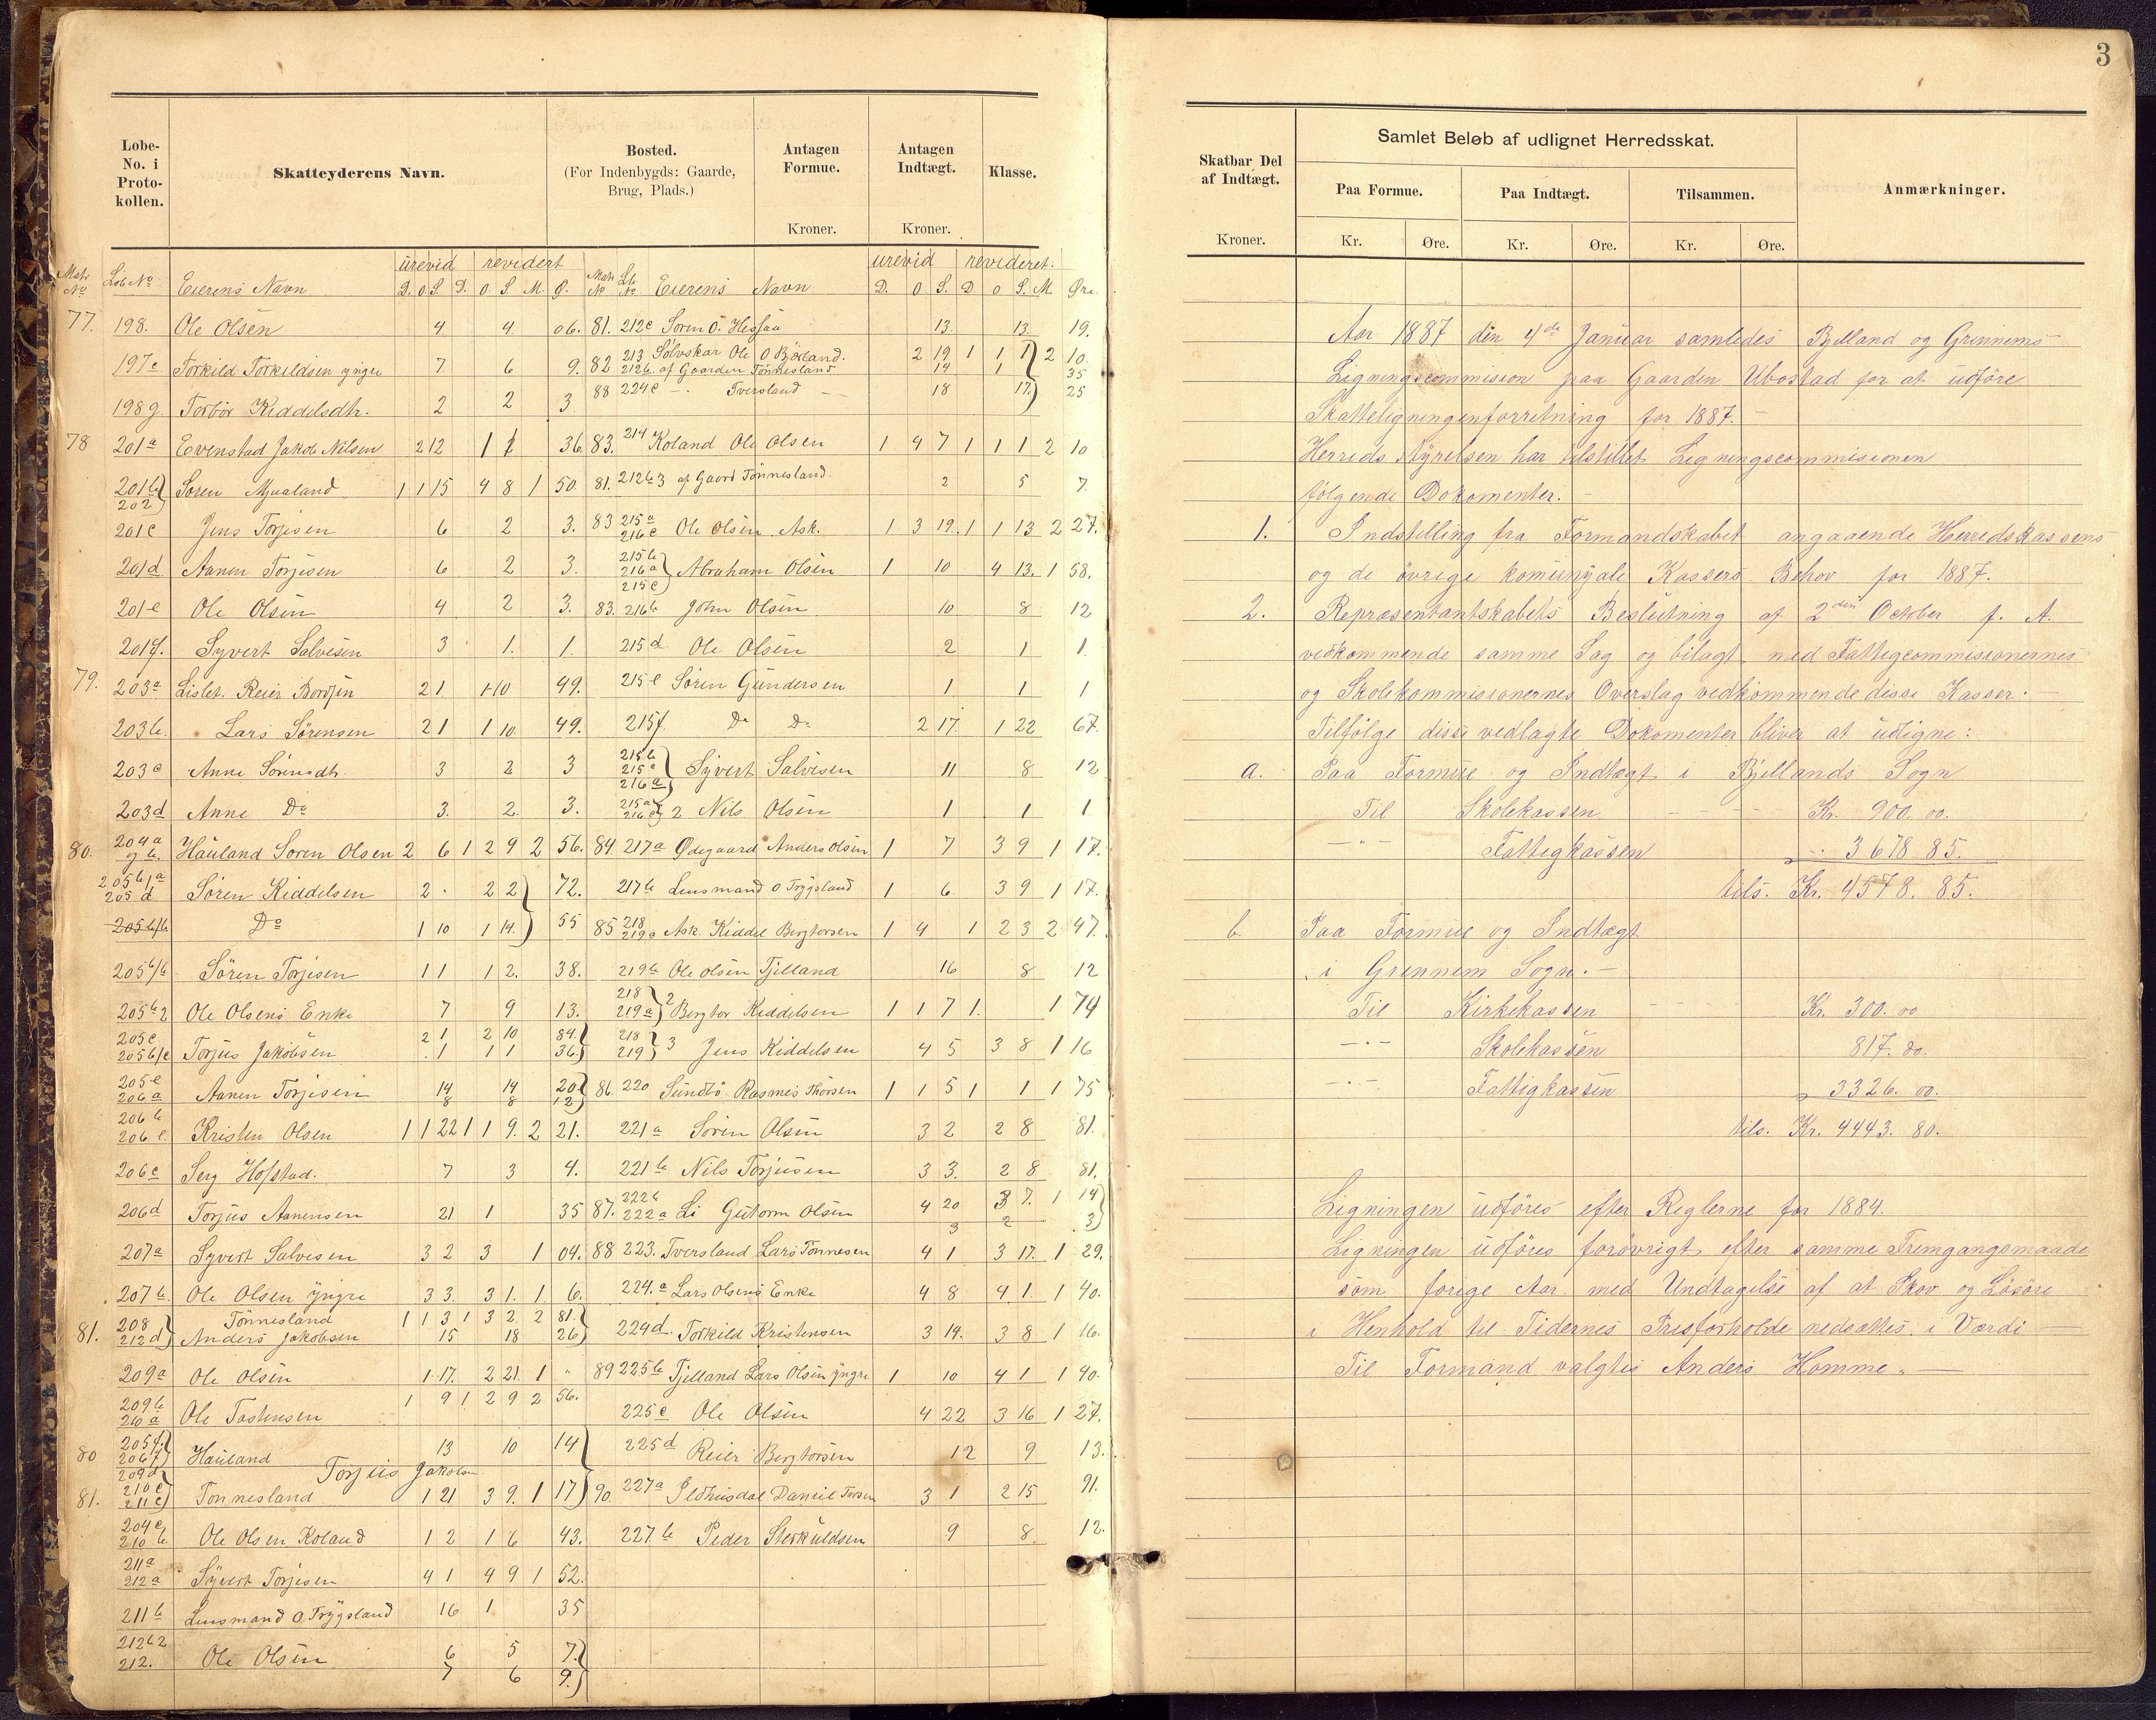 3
Løbe-No. i Proto-kollen.
Skatteyderens Navn.
Bosted.
(For Indenbygds: Gaarde, Brug, Plads.)
Antagen Formue.
Kroner.
Antagen Indtægt.
Kroner.
Klasse.
urevid revidert urevid revideret.
Matr No Løb No Eierens Navn D. O. S. D. O. S. M. Ø. Matr No Lb. No Eierens Navn D. O S. D O S. M. Øre.
77. 198. Ole Olsen 4 4. 06. 81. 212c Søren O. Hessaa 13 13. 19.
197c Torkild Torkildsen yngre 7 6 9. 82 213 Solvskar Ole O Bjørland. 2 19 1 1 1 2 10.
212b. af Gaarden Tønnesland 14 1 35
198g. Torbør Kiddelsdtr. 2 2 3 88 224c - Tversland - 18 17. 25
78 201a Evenstad Jakob Nilsen 2 12 1 1 36. 83. 214 Koland Ole Olsen 1 4 7 1 1 1 2 10
201b 202 Søren Myraland 1 1 15 4 8 1 50. 81. 212b3 af Gaard Tønnesland. 2 5 7.
201c Jens Torjesen 6 2 3. 83 215a 216c Ole Olsen Ask. 1 3 19. 1 1 13 2 27.
201d Aanen Torjesen 6 2 3. 215b 216a 215c Abraham Olsen 1 10 4 13. 1 58.
201e Ole Olsen 4 2 3. 83. 216b John Olsen 10 8 12
201f. Syvert Salvesen 3 1. 1. 215d Ole Olsen 2 1 1.
79. 203a Lislet. Reier Bordjen 2 1 1 10 49. 215e Søren Gundersen 1 1 1
203b. Lars Sørensen 2 1 1 10. 49. 215f. Do Do 2 17. 1 22 67.
203c Anne Sørensdtr. 3 2 3 215b 215c 216a Syvert Salvesen 11 8 12
203d Anne Do 3. 2. 3. 215a 216c 2 Nils Olsen 1 1 1
80. 204a og b. Hauland Søren Olsen 2 6 1 2 9 2 56. 84. 217a Ødegaard Anders Olsen 1 7 3 9 1 17.
205b/a 205d Søren Kiddelsen 2 - 2 2 72. 217b Lensmand O Trygsland 1 6. 3 9 1 17.
205b/b Do 1 10 1 14. 55 85 218 219a Ask. Kiddel Bergtorsen 1 4 1 2 3 2 47.
205b/b Søren Torjesen 1 1 1 2. 38. 219b Ole Olsen Tjelland 16 8 12
205b2 Ole Olsens Enke 7 9 13. 218 219a 2 Bergtor Kiddelsen 1 1 7 1. 1 74
205c 2 1 2 10 84. 218 219 3 Jens Kiddelsen 4 5 3 8 1 16
205b/c Torjus Jakobsen . 1 1 1 36.
205e Aanen Torjesen 14 14 20. 86. 220 Sundbø Rasmus Thorsen 1 1 5 1 1 1 75
206a 8 8 12
206b 206e. Kristen Olsen 1 1 22 1 1 9. 2 21. 221a Søren Olsen 3 2 2 8 81.
206c Serg Hofstad. 7 3 4. 221b Nils Torjusen 3 3. 2 8 81.
206d Torjus Aanensen 21 1 35 87. 222b 222a Li Gutorm Olsen 4 20 3 7. 1 14
3 2 3
207a Syvert Salvesen 3 2 3 1 04. 88 223. Tversland Lars Tønnesen 4 1 3 17. 1 29.
207b. Ole Olsen yngre 3 3. 3 1. 1 6. 224.a Lars Olsens Enke 4 8 4 1. 1 40.
81. 208 Tønnesland 1 1 3 1 3 2. 2 81.
212d Anders Jakobsen 15 18 26 224d. Torkild Kristensen 3 14. 3 8 1 16.
209a Ole Olsen 1 17. 2 21. 1 " 89 225b Tjelland Lars Olsen yngre 1 10 4 1 1 40.
209b 210a Ole Tostensen 1 9 1 2 9 2 56. 225c Ole Olsen 4 22 3 16 1 27.
80 205f. 206f Hauland 13 10 14 225d Reier Bergtorsen 12 9 13.
Torjus Jakobsen
81. 209d 210c 211c Tonnesland 1 21 3 9. 1 17 90. 227a Ildhusdal Daniel Torsen 3 1 2 15 91.
204c 210b. Ole Olsen Koland 1 2 1 6 43. 227.b Peder Sterkuldsen 9 8. 12.
211a 212a Syvert Torjesen 4 1 4 9 1 52.
211b Lensmand O. Trygsland 16 1 35
212b2 6 5 7.
212. Ole Olsen 7 6 9.
Skatbar Del af Indtægt.
Kroner.
Samlet Beløb af udlignet Herredsskat.
Paa Formue.
Paa Indtægt.
Tilsammen.
Kr. Øre. Kr. Øre. Kr. Øre.
Anmærkninger.
Aar 1887 den 4de Januar samledes Bjelland og Grinnems
Ligningscommision paa Gaarden Ubostad for at udføre
Skatteligningenforretning for 1887. -
Herreds Styrelsen har tilstillet Ligningscommisionen
følgende Dokomenter. -
1. Indstilling fra Formandskabet angaaende Herredskassens
og de øvrige komunale Kassers Behov for 1887.
2. Repræsentantskabets Beslutning af 2den October f. A.
vedkommende samme Sag og bilagt med Fattigcommisionernes
og Skolekommissionernes Overslag vedkommende disse Kasser. -
Tilfølge disse vedlagte Dokomenter bliver at udligne:
a. Paa Formue og Indtægt i Bjellands Sogn
Til Skolekassen - - - - Kr. 900. 00.
- " - Fattigkassen - " 3678 85.
tils. Kr. 4578. 85.
b. Paa Formue og Indtægt
i Grennem Sogn. -
Til Kirkekassen - - - - Kr. 300. 00
- " - Skolekassen 817. 80.
- " - Fattigkassen " 3326. 00.
tils. Kr. 4443. 80.
Ligningen udføres efter Reglerne for 1884.
Ligningen udføres forøvrigt efter samme Fremgangsmaade
som forige Aar med Undtagelse af at Skov og Løsøre
i Henhold til Tidernes Prisforholde nedsattes i Værdi -
Til Formand valgtes Anders Homme. -